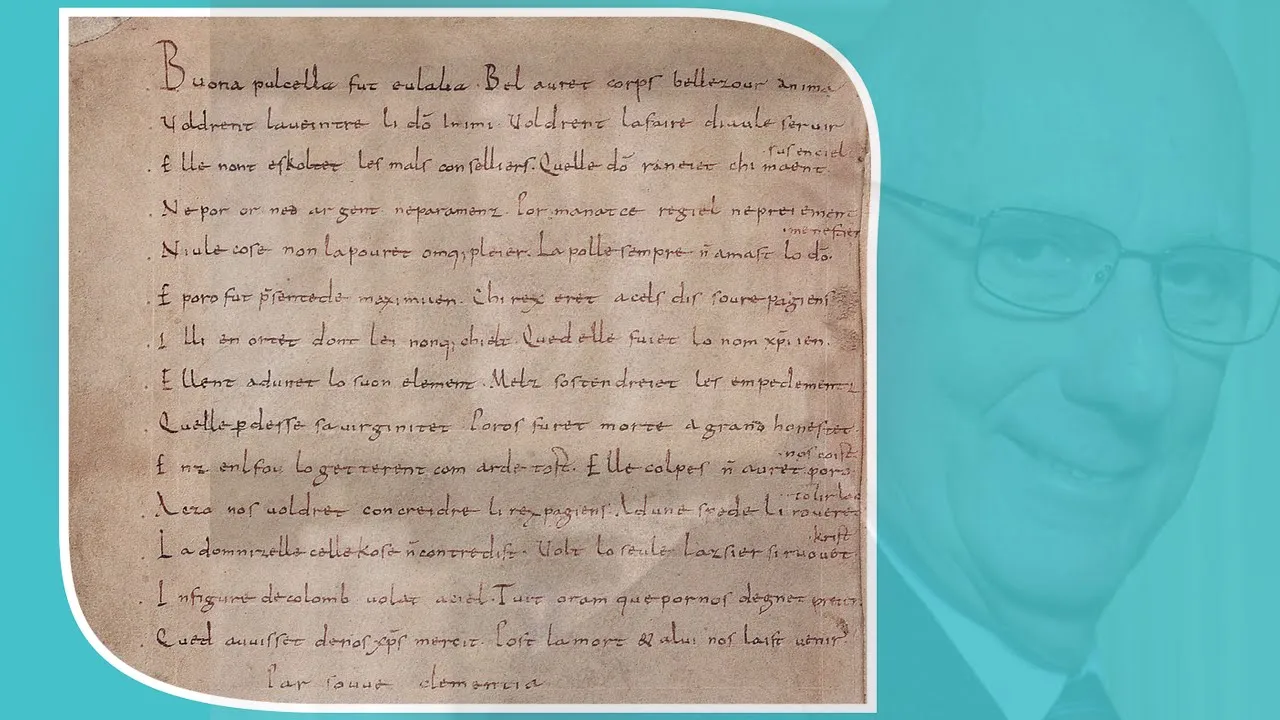 Buona pulcella fut eulalia. Bel auret corps bellezour anima
Voldrent la ueintre li dō Inimi. Voldrent la faire diaule seruir
sus en ciel
Elle nont eskoltet les mals conselliers. Quelle dō raneiet chi maent
Ne por or ned argent neparamenz. Por manatce regiel ne preiement
menestier
Niule cose non la pouret omq; pleier. La polle sempre n̄ amast lo dō
E poro fut p̄sentede maximiien. Chi rex eret a cels dis soure pagiens
Illi en ortet dont lei nonq; chielt. Qued elle fuiet lo nom xp̄iien.
Ellent adunet lo suon element. Melz sostendreiet les empedementz
Quelle ꝑdesse sa uirginitet. Poros furet morte a grand honestet.
nos coist
Enz enl fou lo getterent com arde tost. Elle colpes n̄ auret poro
Aezo nos uoldret concreidre li rex pagiens. Ad une spede li roueret
krist
La domnizelle celle kose n̄ contredist. Volt lo seule lazsier si ruouet
In figure de colomb uolat a ciel. Tuit oram que por nos degnet preier
Qued auuisset de nos xp̄s mercit. Post la mort & a lui nos laist uenir
Par souue clementia